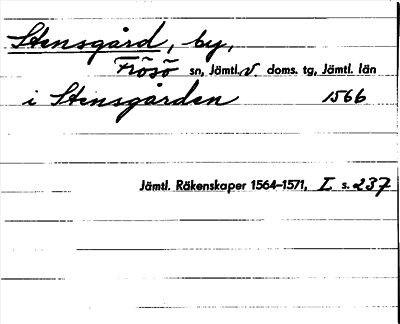 Stensgård, by,
Frösö sn, Jämtl. v. doms. tg, Jämtl. län
i Stensgården 1566
Jämtl. Räkenskaper 1564–1571, I s. 237